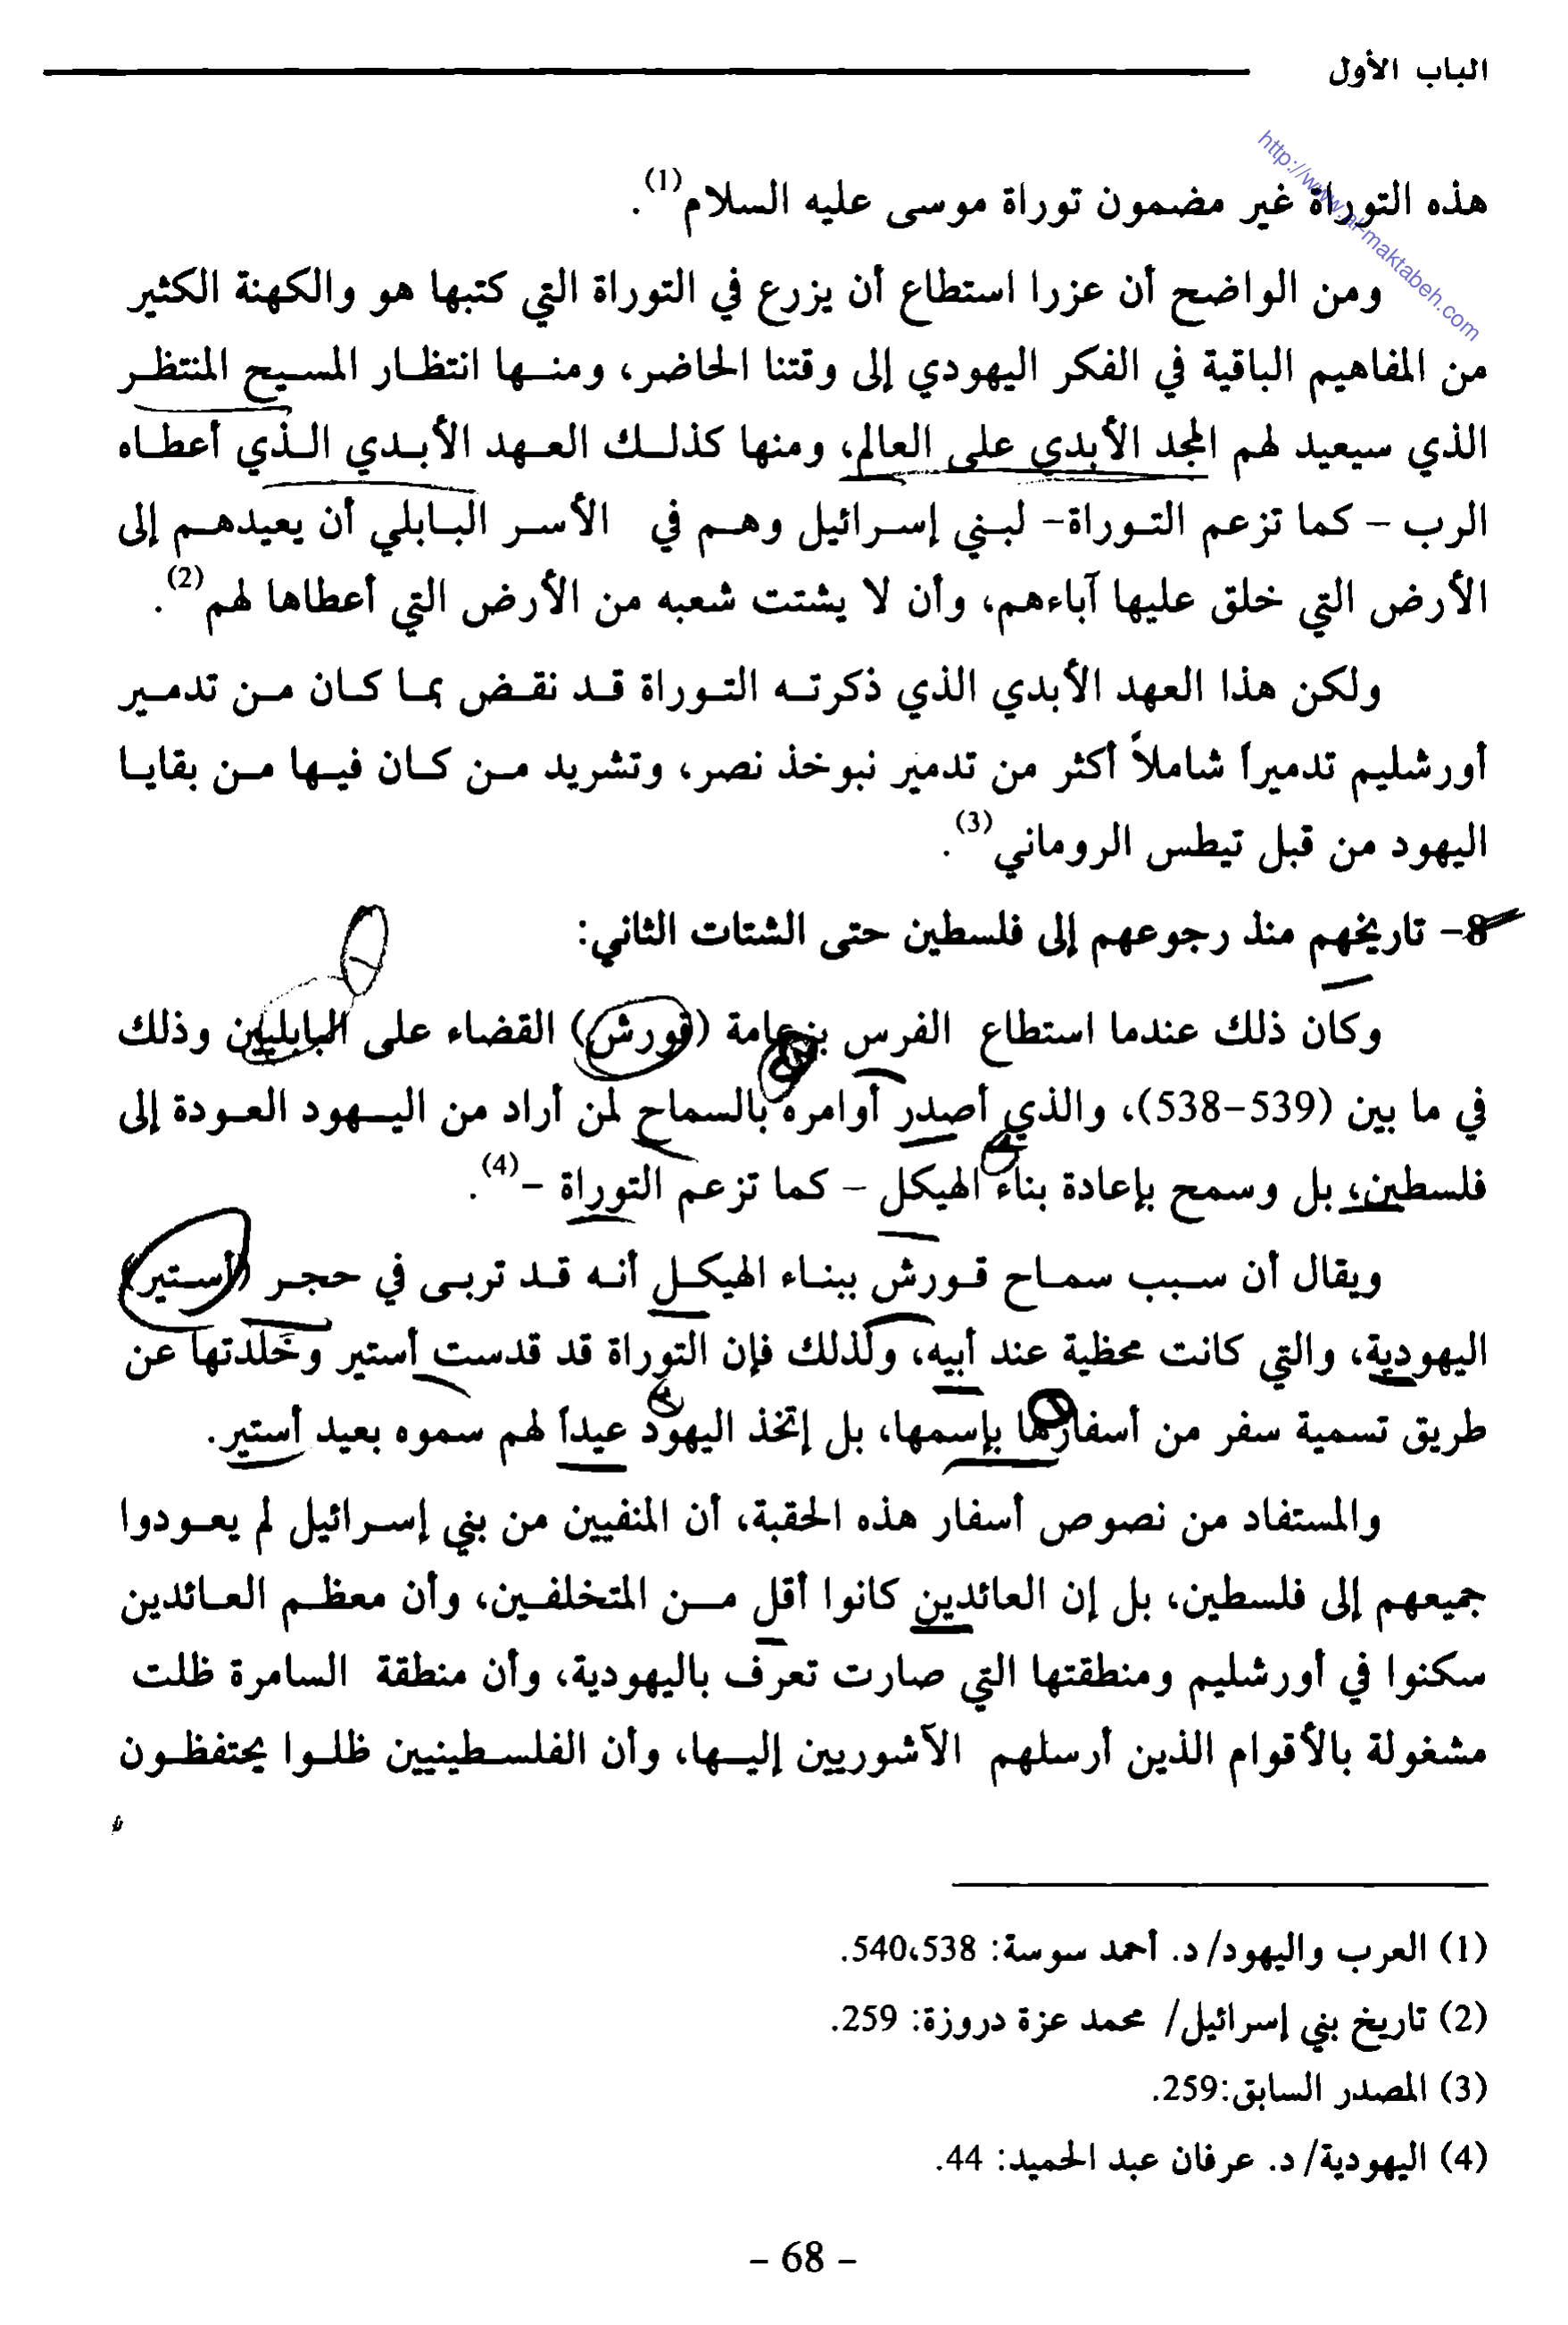 الباب الأول
http://www.al-maktabeh.com
هذه التوراة غير مضمون توراة موسى عليه السلام(1).
ومن الواضح أن عزرا استطاع أن يزرع في التوراة التي كتبها هو والكهنة الكثير
من المفاهيم الباقية في الفكر اليهودي إلى وقتنا الحاضر، ومنها انتظار المسيح المنتظر
الذي سيعيد لهم المجد الأبدي على العالم، ومنها كذلك العهد الأبدي الذي أعطاه
الرب – كما تزعم التوراة- لبني إسرائيل وهم في الأسر البابلي أن يعيدهم إلى
الأرض التي خلق عليها آباءهم، وأن لا يشتت شعبه من الأرض التي أعطاها لهم(2).
ولكن هذا العهد الأبدي الذي ذكرته التوراة قد نقض بما كان من تدمير
أورشليم تدميراً شاملاً أكثر من تدمير نبوخذ نصر، وتشريد من كان فيها من بقايا
اليهود من قبل تيطس الروماني(3).
8- تاريخهم منذ رجوعهم إلى فلسطين حتى الشتات الثاني:
وكان ذلك عندما استطاع الفرس بزعامة (قورش) القضاء على البابليين وذلك
في ما بين (539-538)، والذي أصدر أوامره بالسماح لمن أراد من اليهود العودة إلى
فلسطين، بل وسمح بإعادة بناء الهيكل – كما تزعم التوراة –(4).
ويقال أن سبب سماح قورش ببناء الهيكل أنه قد تربى في حجر (أستير)
اليهودية، والتي كانت محظية عند أبيه، ولذلك فإن التوراة قد قدست أستير وخَلدتها عن
طريق تسمية سفر من أسفارها بإسمها، بل إتخذ اليهود عيداً لهم سموه بعيد أستير.
والمستفاد من نصوص أسفار هذه الحقبة، أن المنفيين من بني إسرائيل لم يعودوا
جميعهم إلى فلسطين، بل إن العائدين كانوا أقل من المتخلفين، وأن معظم العائدين
سكنوا في أورشليم ومنطقتها التي صارت تعرف باليهودية، وأن منطقة السامرة ظلت
مشغولة بالأقوام الذين أرسلهم الآشوريين إليها، وأن الفلسطينيين ظلوا يحتفظون
(1) العرب واليهود/ د. أحمد سوسة: 540،538.
(2) تاريخ بني إسرائيل/ محمد عزة دروزة: 259.
(3) المصدر السابق:259.
(4) اليهودية/ د. عرفان عبد الحميد: 44.
- 68 -